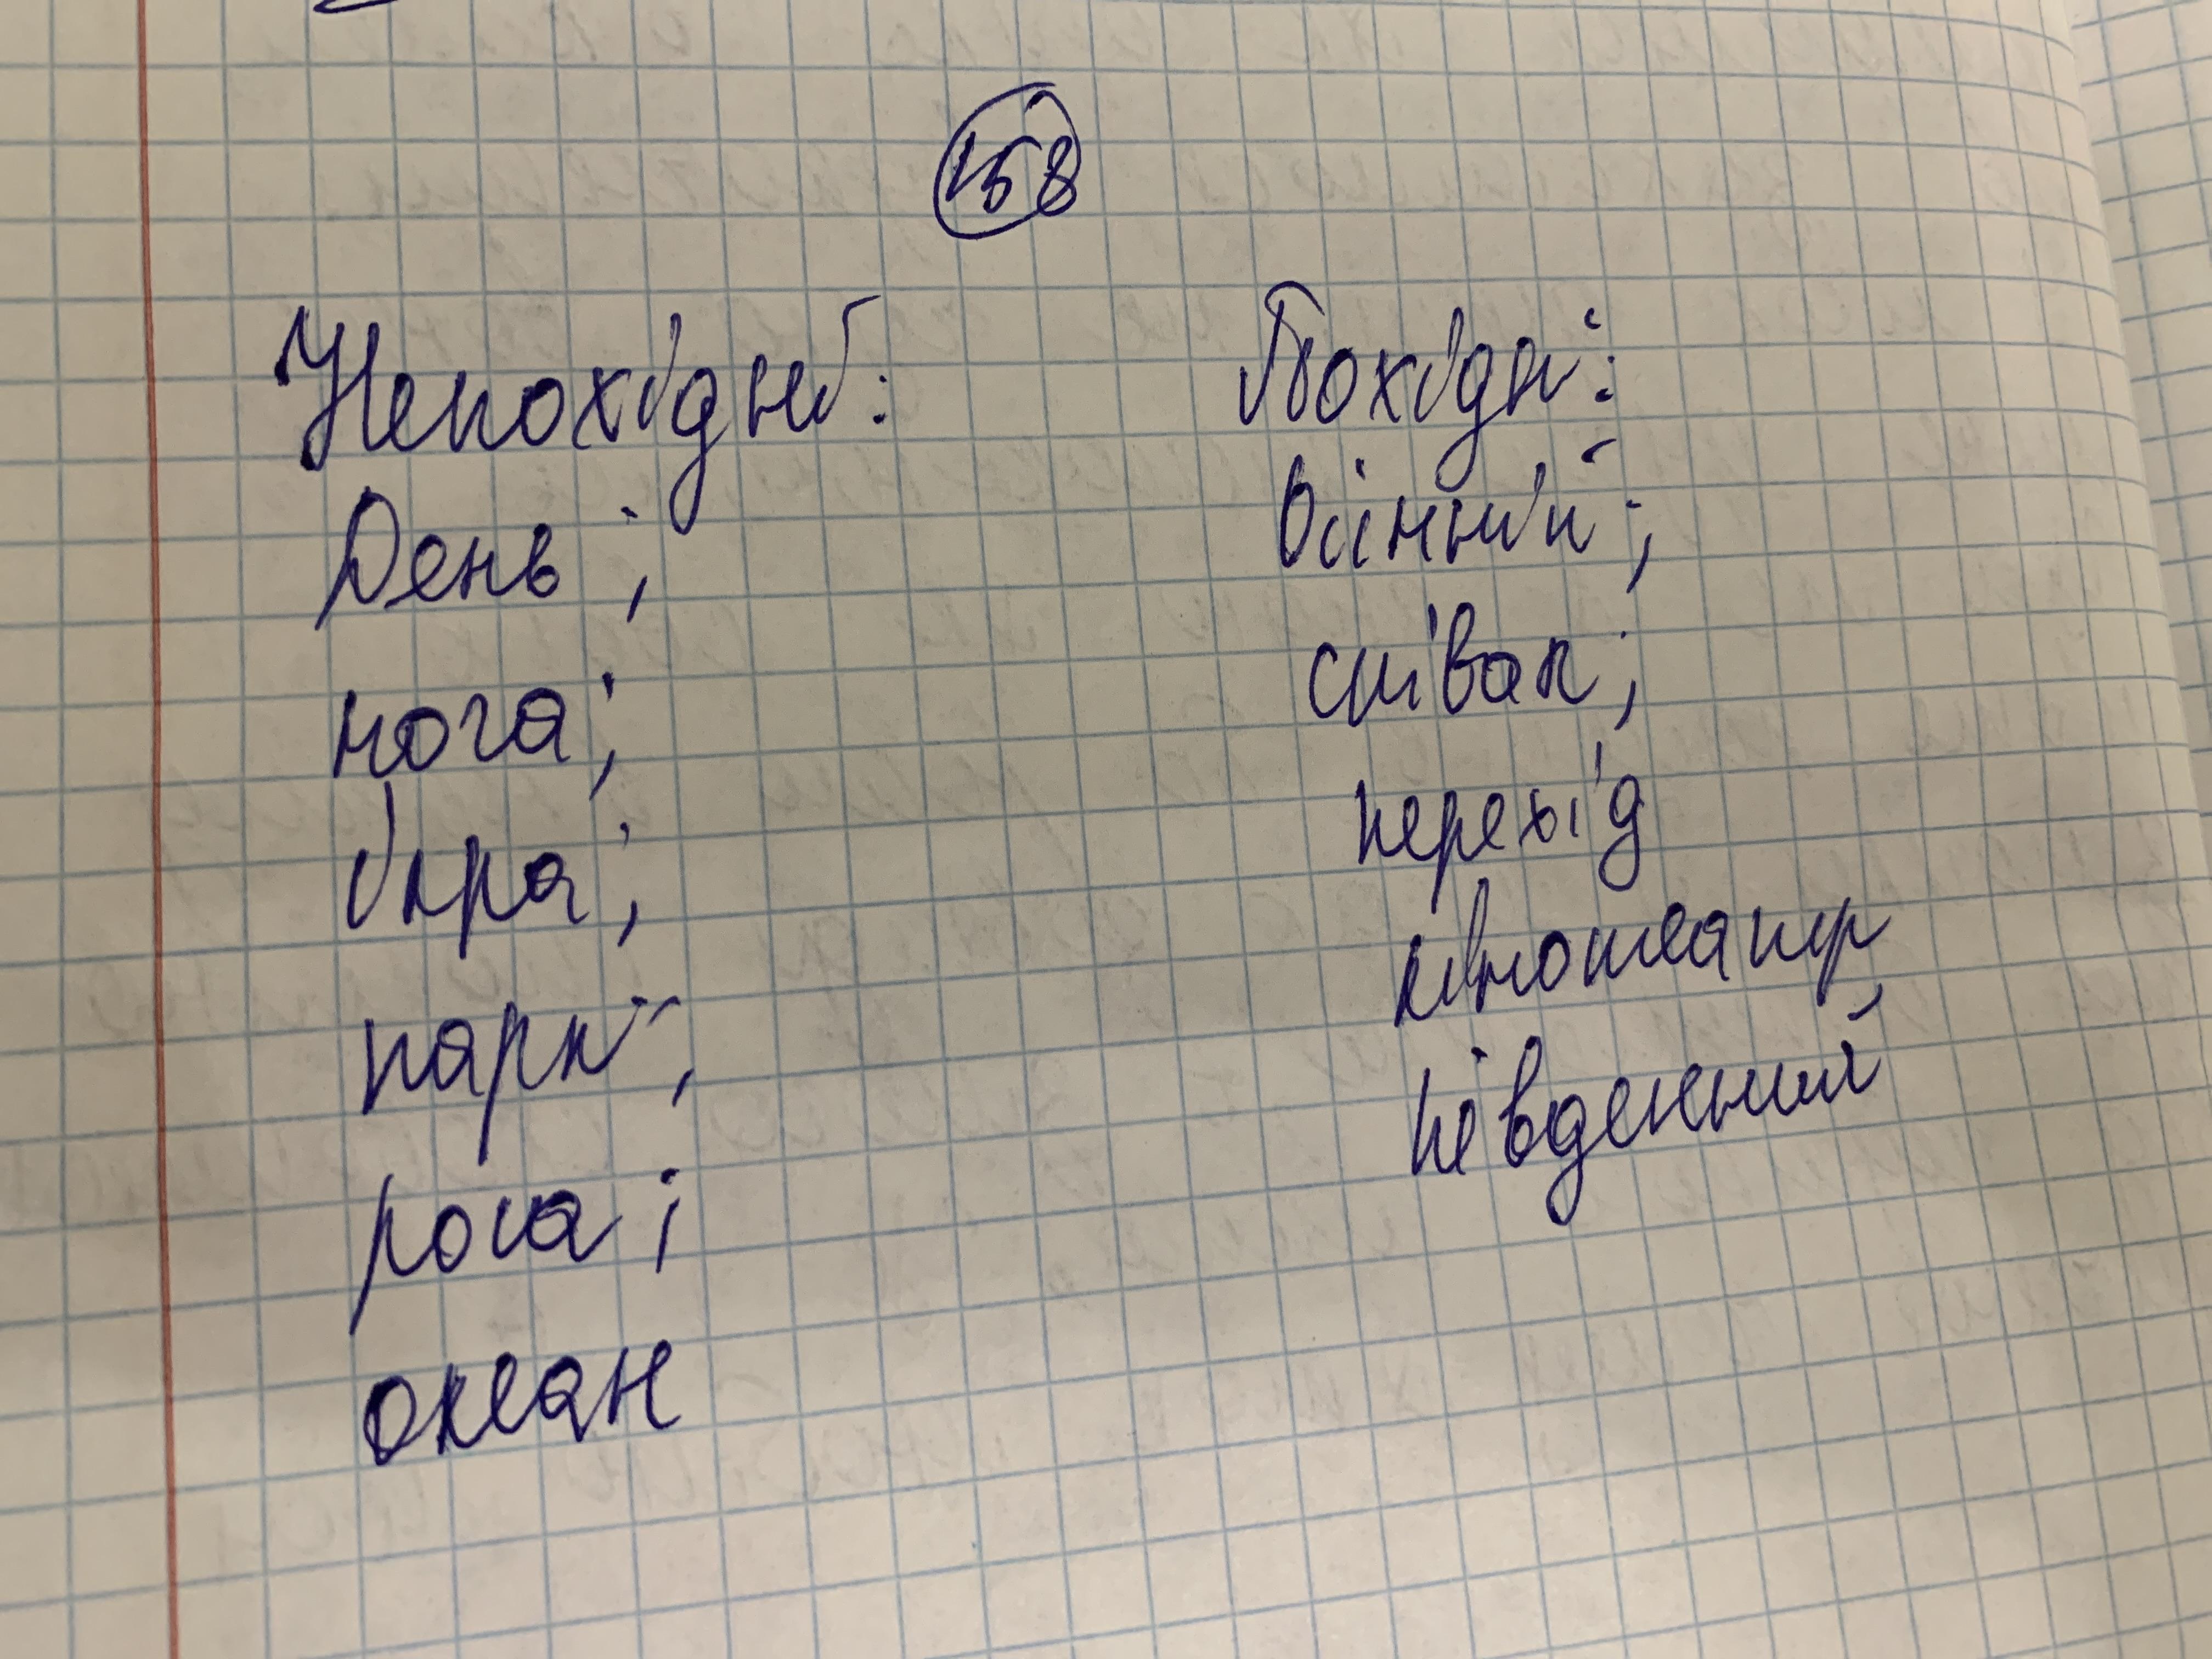 158
Непохідні:
День;
нога;
ікра;
парк;
роса;
океан
Похідні:
співак;
перехід
кінотеатр
південний